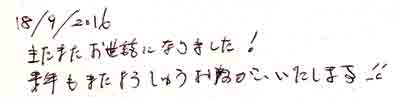 18/9/2016
またまたお世話になりました!
来年もまたよろしゅうおねがいいたしまする